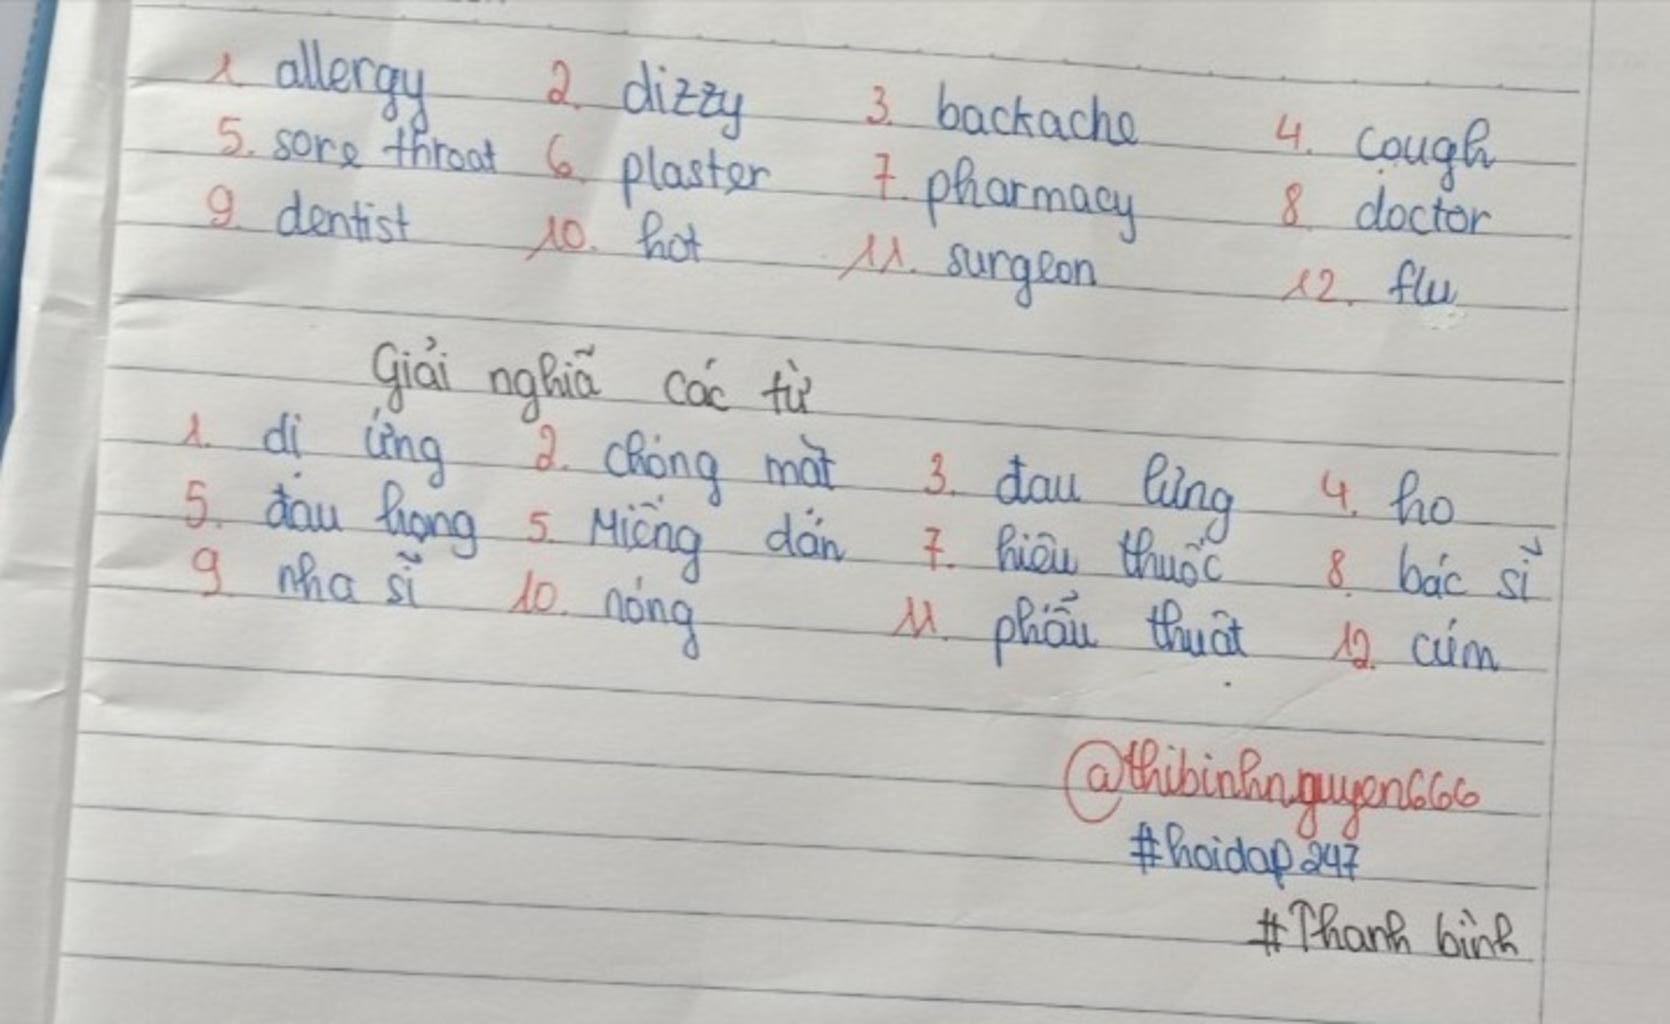 1 allergy 2. dizzy 3. backache 4. cough
5. sore throat 6. plaster 7. pharmacy 8. doctor
9. dentist 10. hot 11. surgeon 12. flu
Giải nghĩã các từ
1. dị ứng 2. chóng mặt 3. đau lưng 4. ho
5. đau họng 5. Miếng dán 7. hiệu thuốc 8. bác sĩ
9 nha sĩ 10. nóng 11. phẫu thuật 12. cúm
@thibinhnguyen666
#hoidap247
#Thanh bình